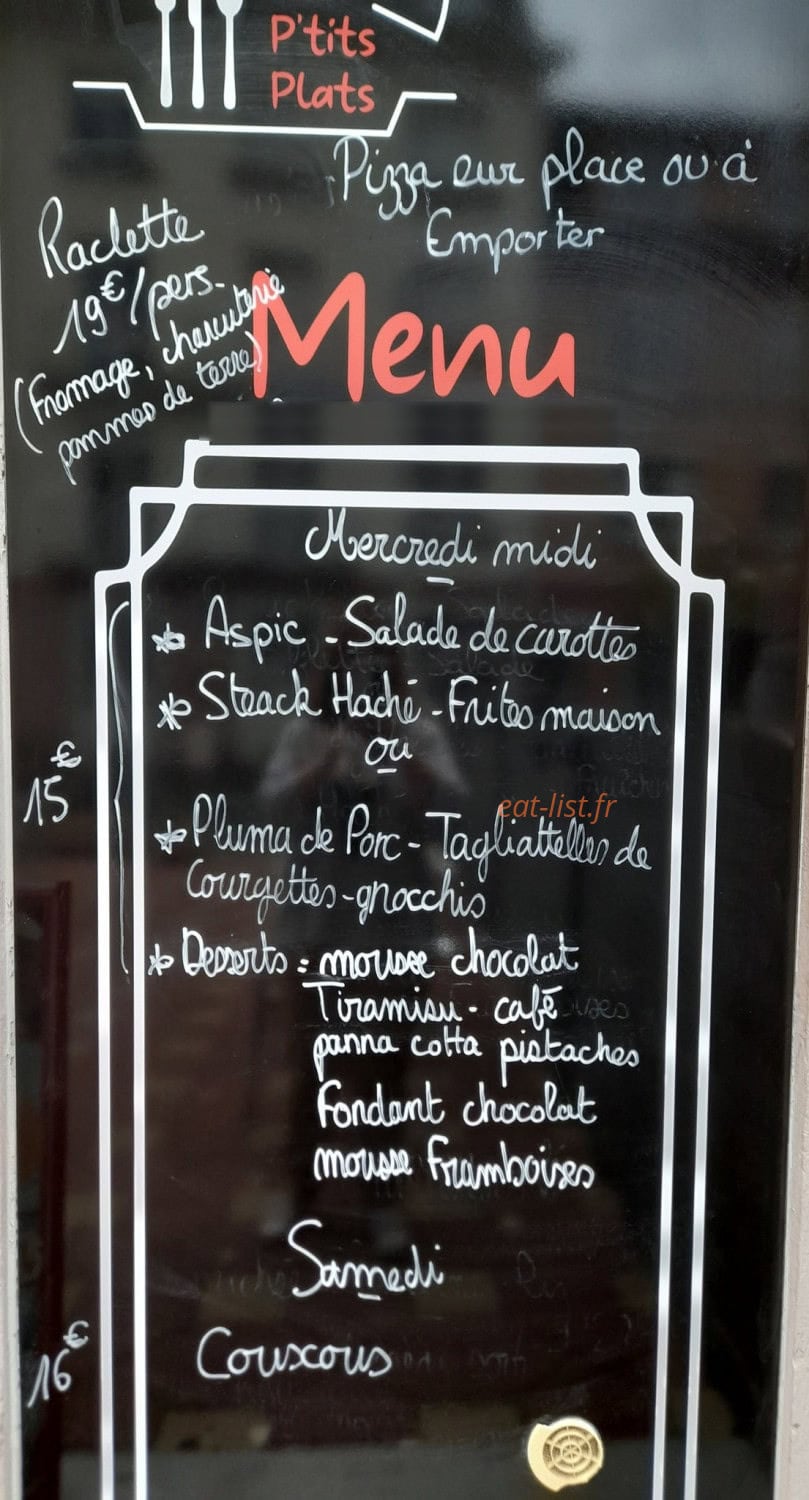 P'tits
Plats
Pizza sur place ou à
Emporter
Raclette
19€/pers.
(Fromage, charcuterie
pommes de terre)
Menu
Mercredi midi
* Aspic - Salade de carottes
* Steack Haché - Frites maison
ou
15€
eat-list.fr
* Pluma de Porc - Tagliattelles de
Courgettes-gnocchis
* Desserts : mousse chocolat
Tiramisu - café
panna cotta pistaches
Fondant chocolat
mousse Framboises
Samedi
16€
Couscous